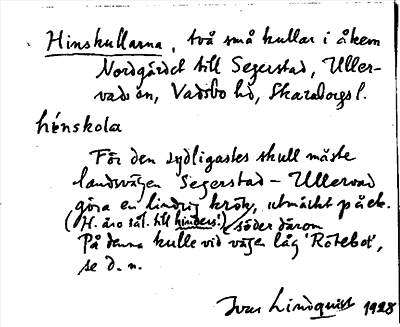 Hinskullarna, två små kullar i åkern
Nordgärdet till Segerstad, Uller-
vads sn, Vadsbo hd, Skaraborgs l.
hénskola
För den sydligastes skull måste
landsvägen Segerstad – Ullervad
göra en lindrig krök, utmärkt på ek.
(H. äro sål. till hinders!) söder därom
På denna kulle vid vägen låg 'Rotebot',
se d. n.
Ivar Lindquist 1928